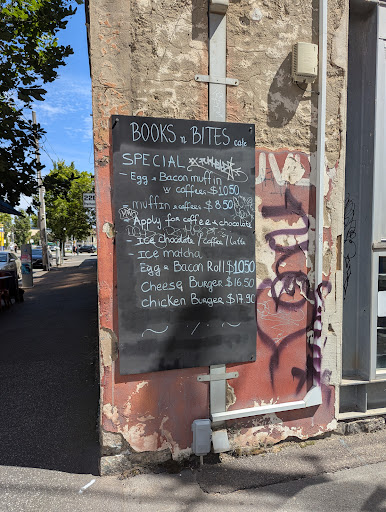 BOOKS n BITES cafe
SPECIAL
- Egg & Bacon muffin
w coffee $10.50
- muffin & coffee $8.50
Apply for coffee & chocolate
- Ice chocolate / coffee / latte
- Ice matcha
Egg & Bacon Roll $10.50
Cheese Burger $16.50
chicken Burger $17.90